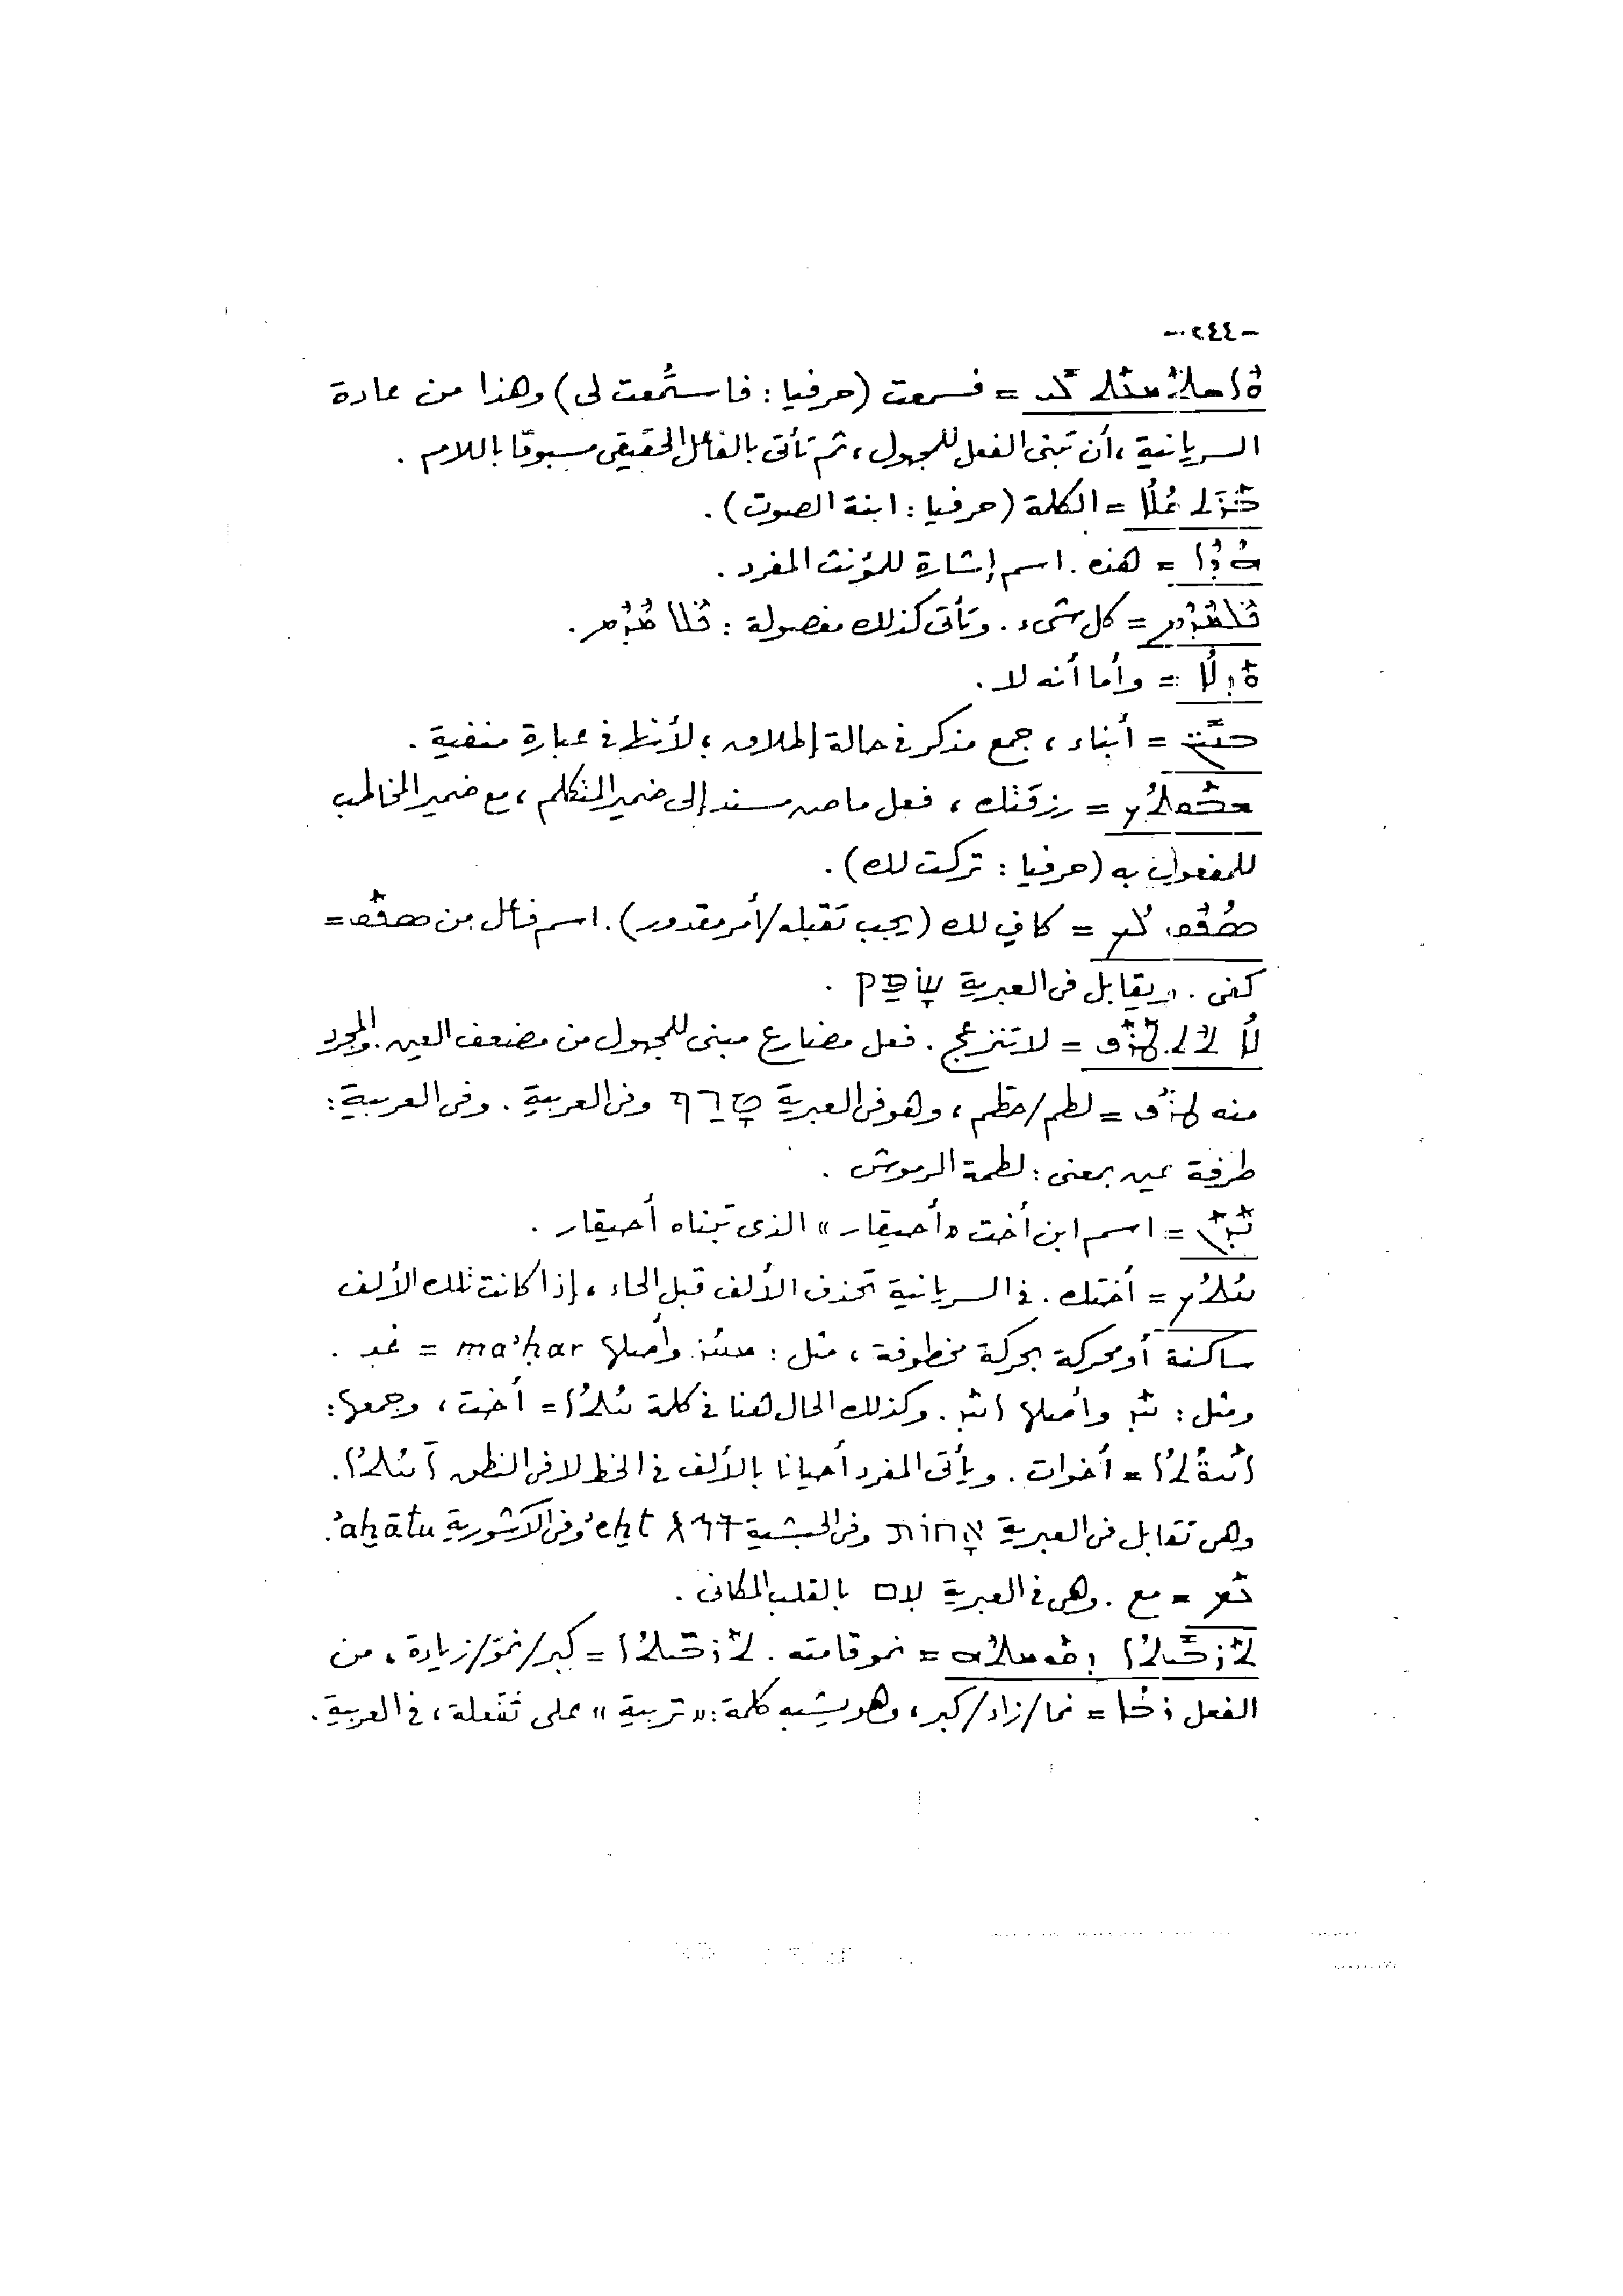 - ٢٤٤ -
ܘܐܫܬܡܥܬ ܠܝ = فسمعت (حرفيا : فاستُمعت لى) وهذا من عادة
السريانية ، أن تبنى الفعل للمجهول ، ثم تأتى بالفاعل الحقيقى مسبوقا باللام .
ܒܪܬ ܩܠܐ = الكلمة (حرفيا : ابنة الصوت) .
ܗܕܐ = هذه . اسم إشارة للمؤنث المفرد .
ܟܠܡܕܡ = كل شىء . وتأتى كذلك مفصولة : ܟܠ ܡܕܡ .
ܘܕܠܐ = وأما أنه لا .
ܒܢܝܢ = أبناء ، جمع مذكر فى حالة إطلاق ؛ لأنها فى عبارة منفية .
ܫܒܩܬܟ = رزقتك ، فعل ماض مسند إلى ضمير المتكلم ، مع ضمير المخاطب
للمفعول به (حرفيا : تركت لك) .
ܣܦܩ ܠܟ = كافٍ لك (يجب تقبله/أمر مقدور) . اسم فاعل من ܣܦܩ =
كفى . ويقابل فى العبرية שָׂפַק .
ܠܐ ܬܬܛܪܦ = لا تنزعج . فعل مضارع مبنى للمجهول من مضعف العين . والمجرد
منه ܛܪܦ = لطم/حطم ، وهو فى العبرية טָרַף وفى العربية . وفى العربية :
طرفة عين بمعنى : لطمة الرموش .
ܢܕܢ = اسم ابن أخت «أحيقار» الذى تبناه أحيقار .
ܚܬܟ = أختك . فى السريانية تحذف الألف قبل الحاء ، إذا كانت تلك الألف
ساكنة أو محركة بحركة مخطوفة ، مثل : ܡܚܪ وأصلها ma'ḥar = غد .
ومثل : ܚܕ وأصلها ܐܚܕ . وكذلك الحال هنا فى كلمة ܚܬܐ = أخت ، وجمعها :
ܐܚܘܬܐ = أخوات . ويأتى المفرد أحيانا بالألف فى الخط لا فى النطق ܐܚܬܐ .
وهى تقابل فى العبرية אָחוֹת وفى الحبشية እኅት 'eḫt وفى الآشورية aḫātu' .
ܥܡ = مع . وهى فى العبرية עם بالقلب المكانى .
ܬܪܒܝܬܐ ܕܩܘܡܬܗ = نمو قامته . ܬܪܒܝܬܐ = كبر/نموّ/زيادة ، من
الفعل ܪܒܐ = نما/زاد/كبر ، وهو يشبه كلمة : «تربية» على تَفْعلة ، فى العربية .